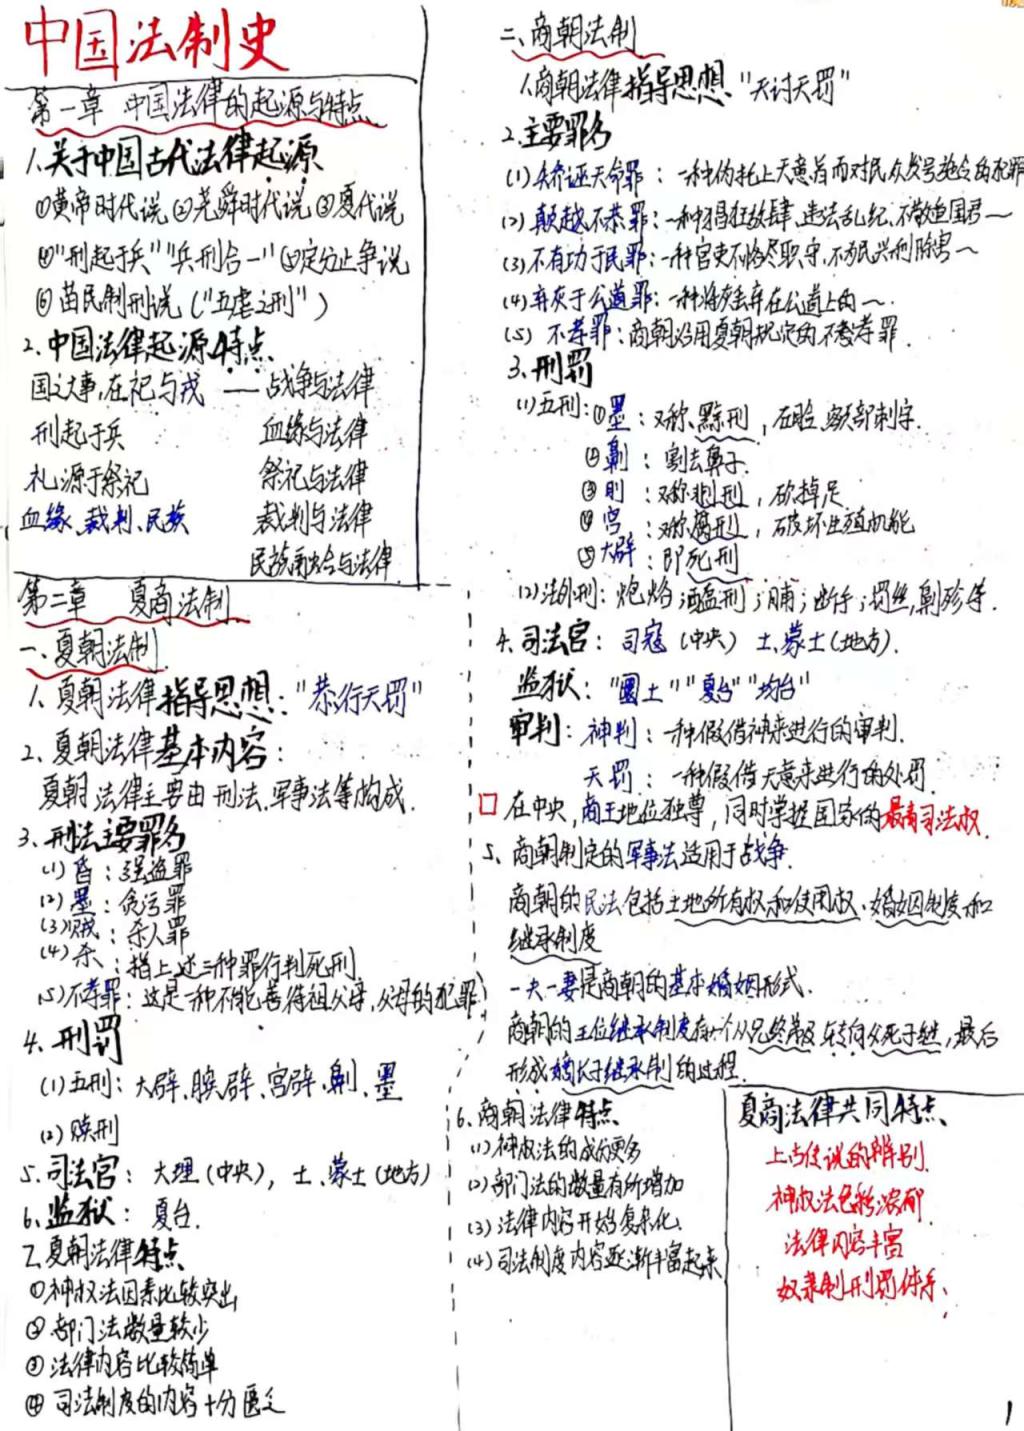 中国法制史
第一章 中国法律的起源与特点
1.关于中国古代法律起源
①黄帝时代说 ②尧舜时代说 ③夏代说
④"刑起于兵""兵刑合一" ⑤定分止争说
⑥ 苗民制刑说 ("五虐之刑")
2.中国法律起源特点
国之大事,在祀与戎 — 战争与法律
刑起于兵 血缘与法律
礼源于祭祀 祭祀与法律
血缘、裁判、民族 裁判与法律
民族融合与法律
第二章 夏商法制
一、夏朝法制
1. 夏朝法律指导思想:"恭行天罚"
2. 夏朝法律基本内容:
夏朝法律主要由刑法、军事法等构成.
3. 刑法主要罪名
(1) 昏:强盗罪
(2) 墨:贪污罪
(3) 贼:杀人罪
(4) 杀:指上述三种罪行判死刑
(5)不孝罪:这是一种不能善待祖父母,父母的犯罪
4. 刑罚
(1)五刑:大辟、膑辟、宫辟、劓、墨
(2) 赎刑
5. 司法官: 大理(中央), 士、蒙士(地方)
6. 监狱: 夏台.
7.夏朝法律特点
①神权法因素比较突出
②部门法数量较少
③法律内容比较简单
④司法制度的内容十分匮乏
二、商朝法制
1.商朝法律指导思想 "天讨天罚"
2.主要罪名
(1)矫诬天命罪:一种伪托上天意旨而对民众发号施令的犯罪
(2) 颠越不恭罪:一种猖狂放肆、违法乱纪、不敬国君~
(3)不有功于民罪:一种官吏不恪尽职守,不为民兴利除害~
(4)弃灰于公道罪:一种将灰弃在公道上的~.
(5) 不孝罪:商朝沿用夏朝规定的不孝罪.
3. 刑罚
(1)五刑:①墨:又称黥刑,在脸、额部刺字.
②劓:割去鼻子.
③刖:又称剕刑,砍掉足
④宫:又称腐刑,破坏生殖机能
⑤大辟:即死刑
(2)法外刑:炮烙;醢刑;脯;断手;罚丝,劓殄等.
4. 司法官: 司寇(中央) 士、蒙士(地方).
监狱: "圜土""夏台""均台"
审判: 神判:一种假借神来进行的审判.
天罚:一种假借天意来进行的处罚
□ 在中央,商王地位独尊,同时掌握国家的最高司法权.
5. 商朝制定的军事法适用于战争.
商朝的民法包括土地所有权和使用权、婚姻制度和
继承制度
一夫一妻是商朝的基本婚姻形式.
商朝的王位继承制度有一个从兄终弟及转向父死子继,最后
形成嫡长子继承制的过程.
6.商朝法律特点
(1)神权法的成份更多
(2)部门法的数量有所增加
(3)法律内容开始复杂化.
(4)司法制度内容逐渐丰富起来
夏商法律共同特点
上古传说的辨别.
神权法色彩浓郁
法律内容丰富
奴隶制刑罚体系.
1